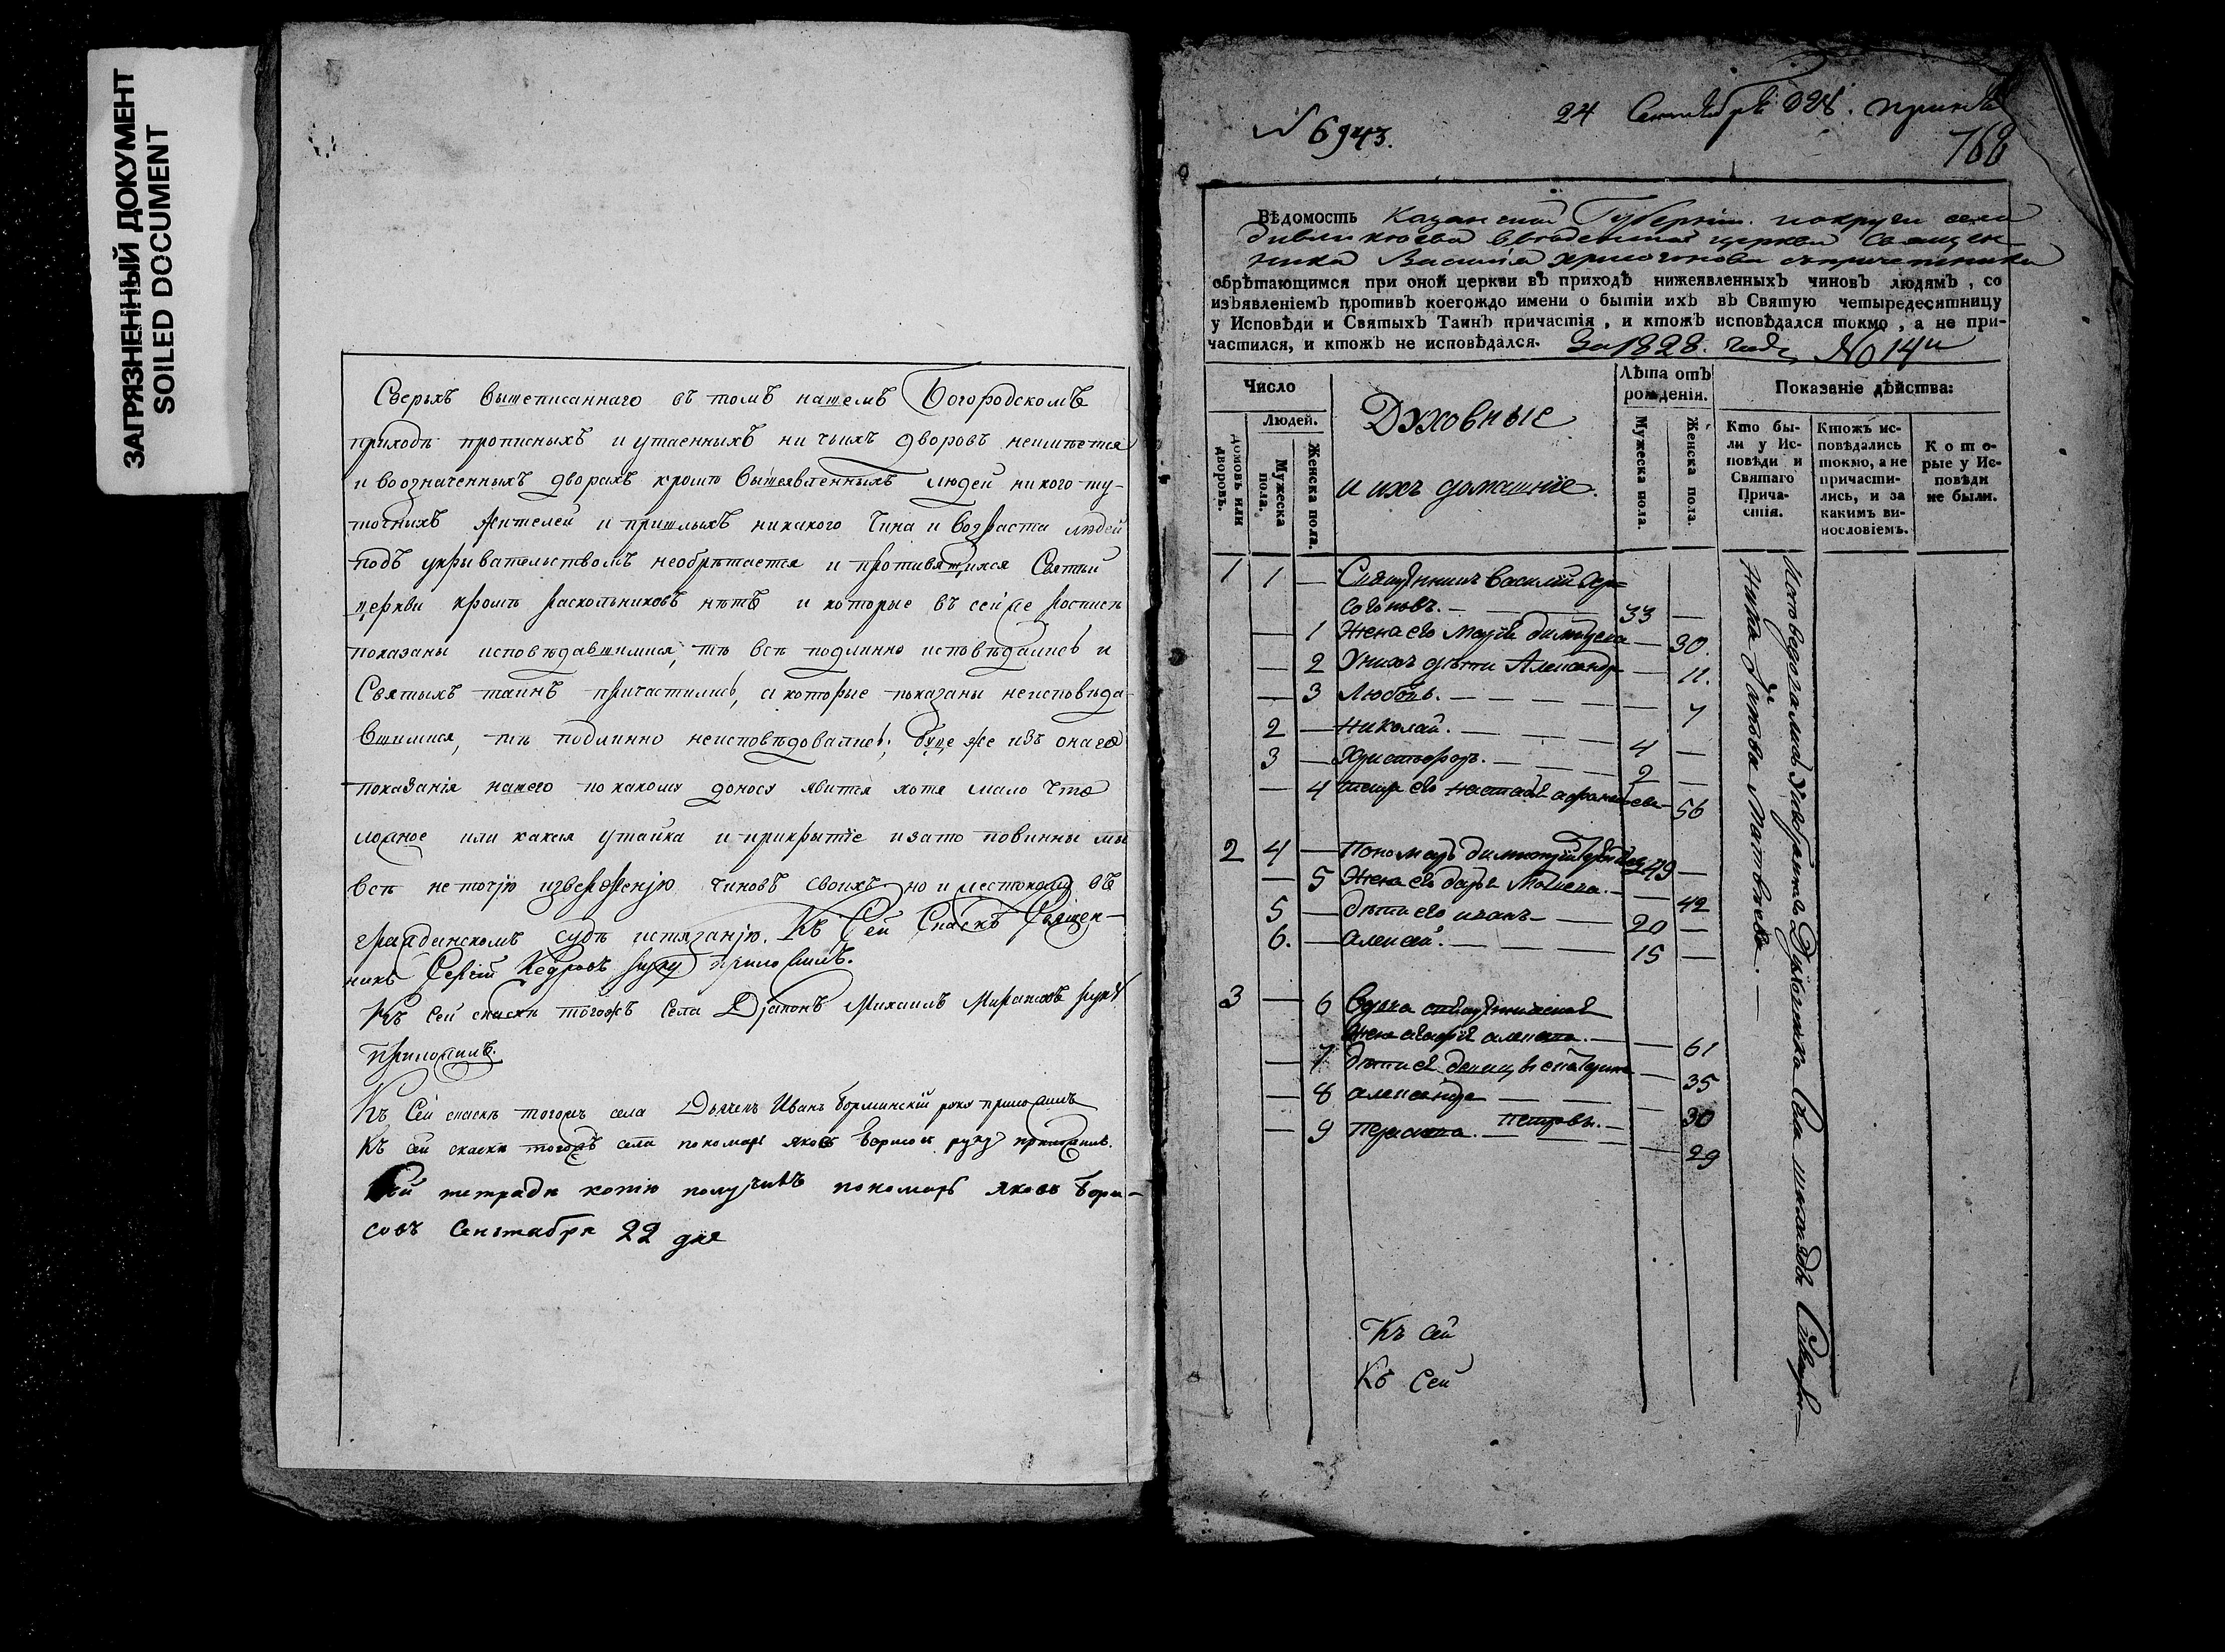 ЗАГРЯЗНЕННЫЙ ДОКУМЕНТ
SOILED DOCUMENT
Сверьхъ вышеписаннаго въ томъ нашемъ Богородскомъ
приходѣ прописныхъ и утаенныхъ ни чьихъ дворовъ неимѣется
и воозначенныхъ дворахъ кромѣ вышеявленныхъ людей никого ту-
тошныхъ жителей и пришлыхъ никакого чина и возраста людей
подъ укрывательствомъ необрѣтается и противящихся Святѣй
церкви кромѣ раскольниковъ нѣтъ и которые въ сей же росписи
показаны исповѣдавшимися, тѣ всѣ подлинно исповѣдались и
Святыхъ таинъ причастились, а которые показаны неисповѣда-
вшимися, тѣ подлинно неисповѣдовались; буде же изъ онаго
показанія нашего по какому доносу явится хотя мало что
ложное или какая утайка и прикрытіе изато повинны мы
всѣ не точїю изверженїю чиновъ своихъ но и жестокому въ
гражданскомъ судѣ истязанїю. Къ Сей Сказкѣ Священ-
никъ Сергій Кедровъ руку приложилъ.
Къ сей сказкѣ тогожъ села Дїаконъ Михаилъ руку
приложилъ.
Къ Сей сказкѣ тогожъ села Дьячекъ Иванъ руку приложилъ
Къ сей сказкѣ тогожъ села пономарь Яковъ Борисовъ руку приложилъ.
Сей тетради копію получилъ пономарь Яковъ Бори-
совъ Сентября 22 дня
24 Сентября 828.
N 6943.
768
Вѣдомость Казанской Губерніи округи села
церкви Священ-
ника Василія
обрѣтающимся при оной церкви въ приходѣ нижеявленныхъ чиновъ людямъ, со
изъявленіемъ противъ коегождо имени о бытіи ихъ въ Святую четыредесятницу
у Исповѣди и Святыхъ Таинъ причастія, и ктожъ исповѣдался токмо, а не при-
частился, и ктожъ не исповѣдался. За 1828. годъ No 14й
Число
Людей.
домовъ или дворовъ.
Мужеска пола.
Женска пола.
Духовные
и ихъ домашніе.
Лѣта отъ рожденія.
Мужеска пола.
Женска пола.
Показаніе дѣйства:
Кто бы-
ли у Ис-
повѣди и
Святаго
Прича-
стія.
Ктожъ ис-
повѣдались
токмо, а не
причасти-
лись, и за
какимъ ви-
нословіемъ.
Кото-
рые у Ис-
повѣди
не были.
1 1 — Священникъ Василій
33 —
— 1 Жена его Марія 30.
— 2 У нихъ дѣти Александра 11.
— 3 Любовь. 7
2 — Николай. 4 —
3 — Христофоръ. 2 —
— 4 его Настасья 56
2 4 — Пономарь Димитрій 49 —
— 5 Жена его Дарья 42
5 — Дѣти его Иванъ 20 —
6. — Алексей. 15 —
3 — 6 Вдова священническая
жена 61
— 7 Дѣти ея 35
— 8 Александра 30
— 9 29
Къ сей
Къ Сей